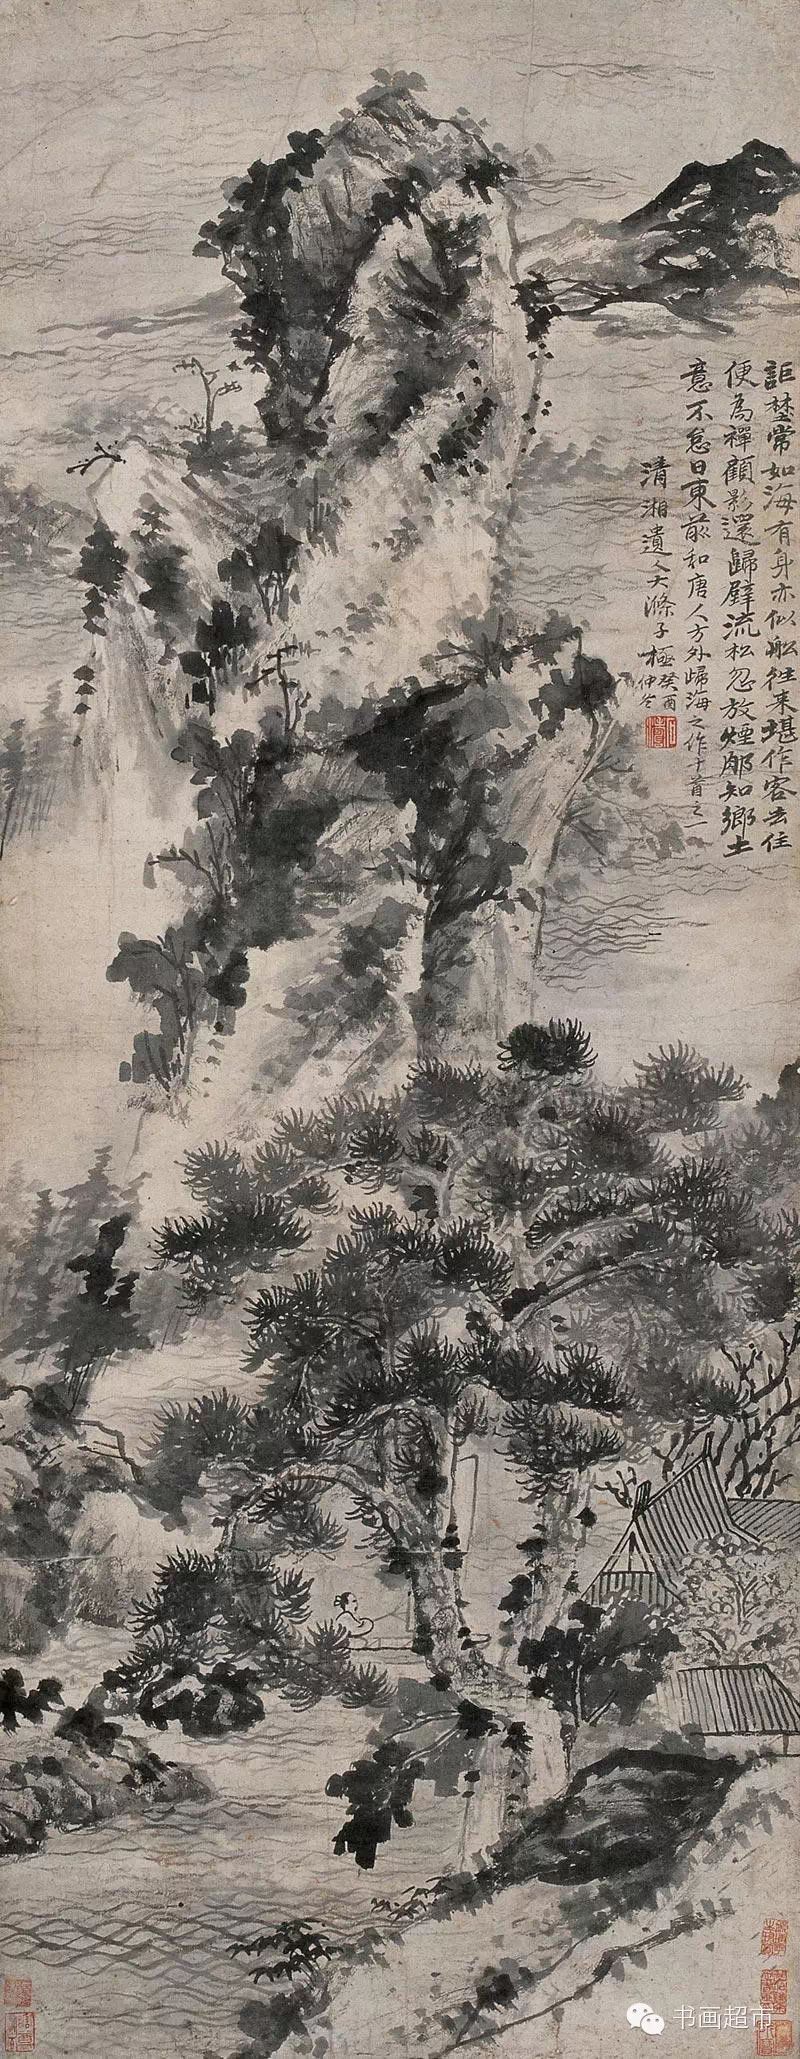 詎常如海有身亦似舩往来堪作客去住
便為禪顧影還歸壁流松忽放煙那知鄉土
意不怠日東 和唐人方外歸海之作十首之一
清湘遺人大滌子極 癸酉仲冬
书画超市